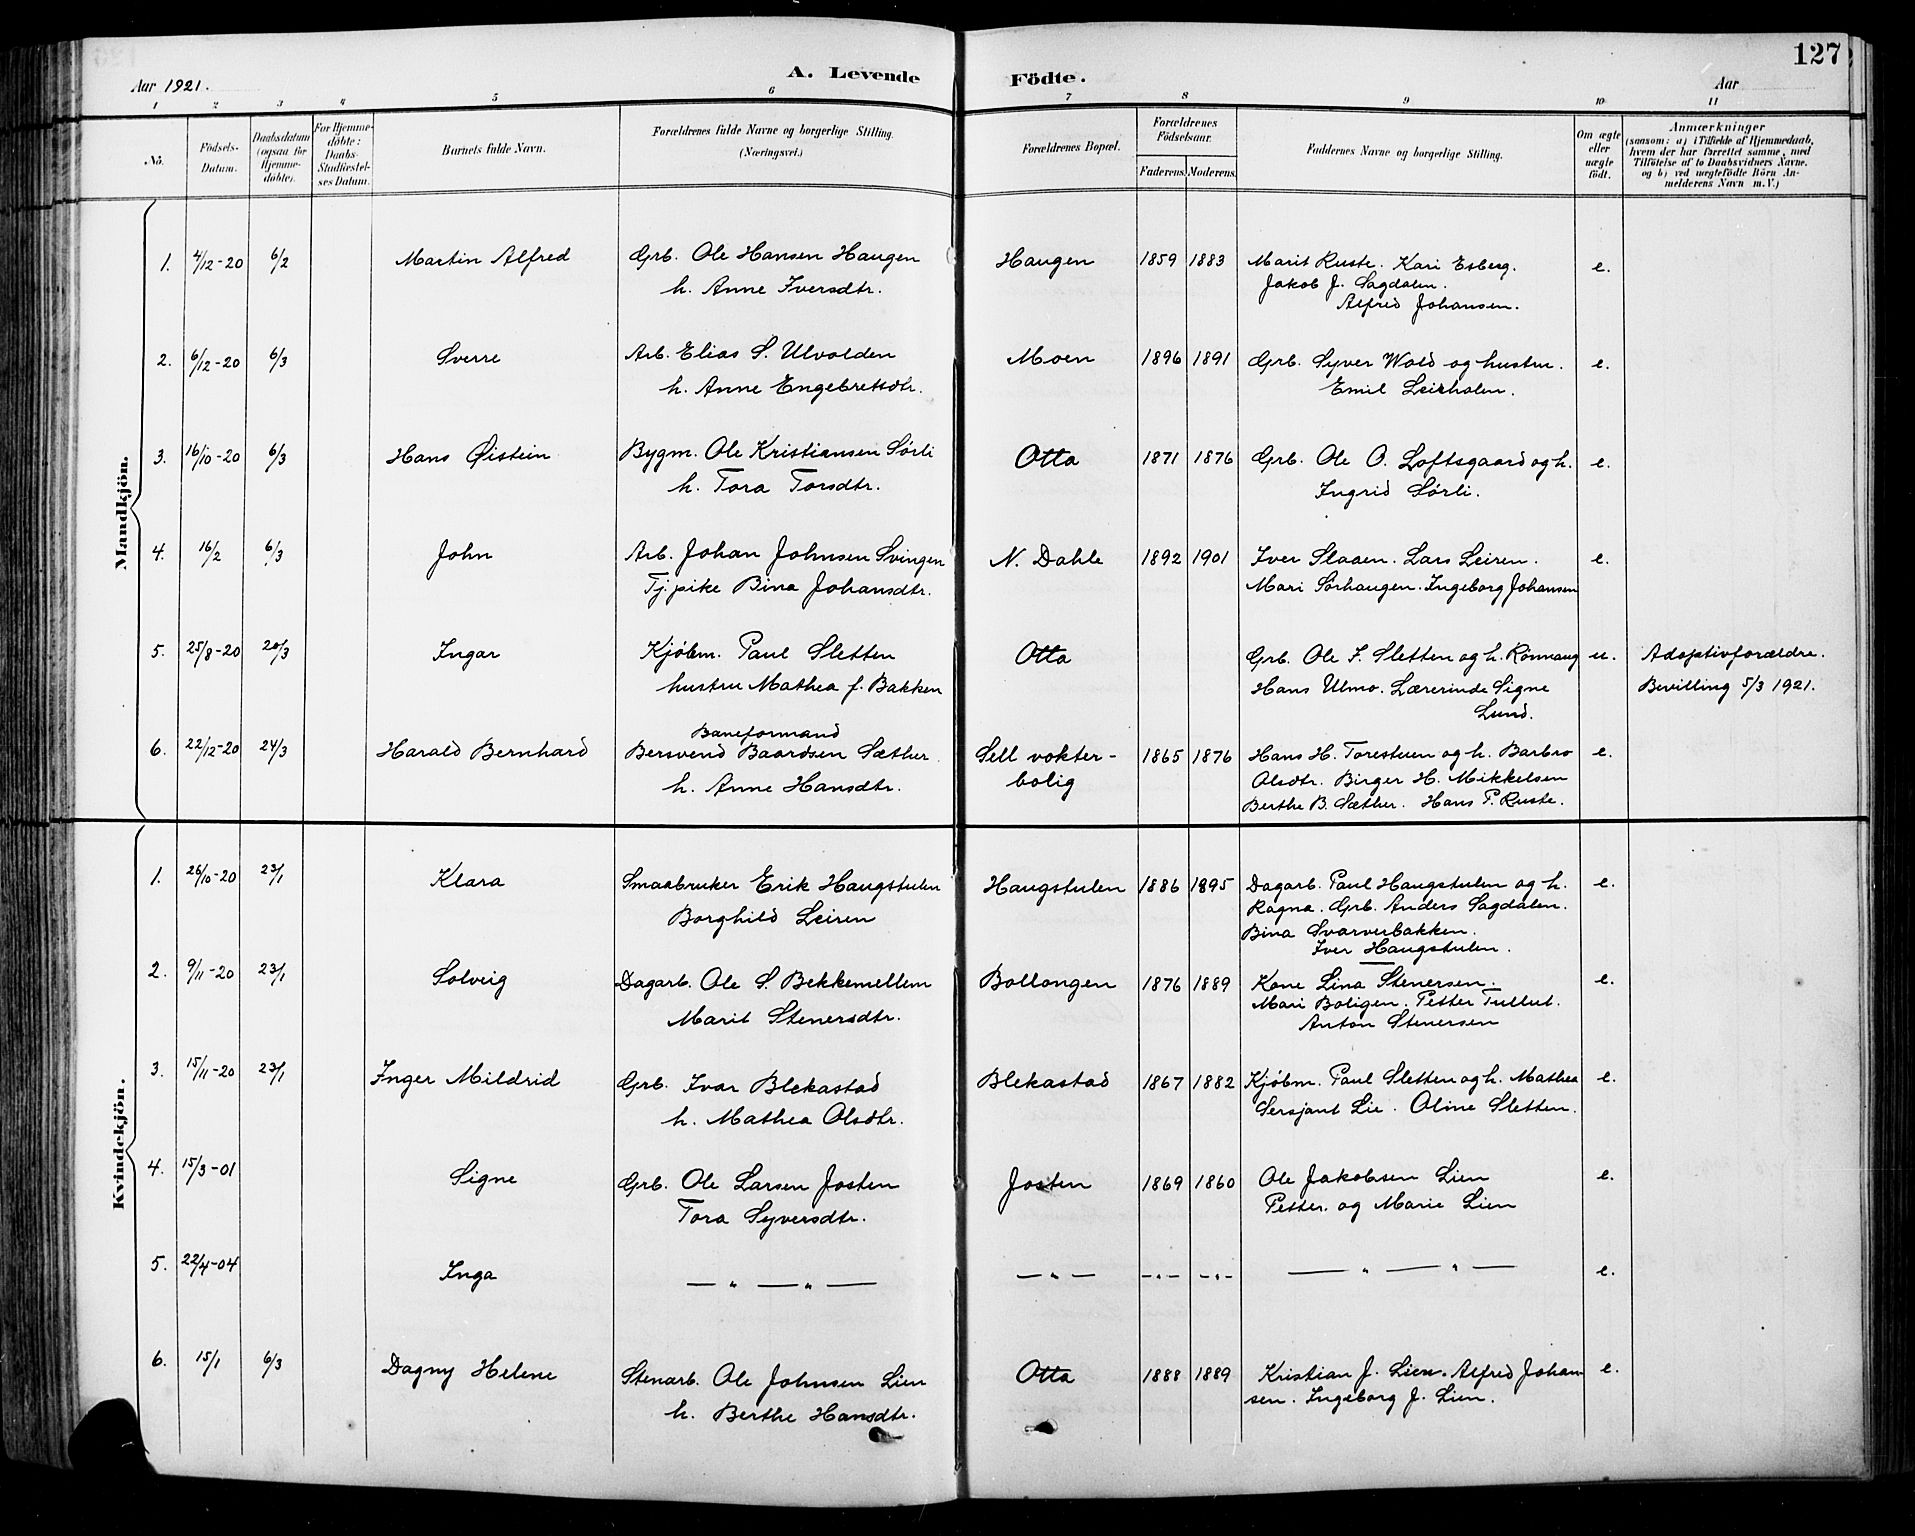 127
Aar 1921.
A. Levende Födte.
Aar
1 2 3 4 5 6 7 8 9 10 11
No.
Födsels-Datum.
Daabsdatum (ogsaa for Hjemmedöbte).
For Hjemmedöbte: Daabs-Stadfæstelses Datum.
Barnets fulde Navn.
Forældrenes fulde Navne og borgerlige Stilling.
(Næringsvei.)
Forældrenes Bopæl.
Forældrenes Födselsaar.
Faderens. Moderens.
Faddernes Navne og borgerlige Stilling.
Om ægte eller uægte födt.
Anmærkninger
(saasom: a) i Tilfælde af Hjemmedaab, hvem der har forrettet samme, med Tilföielse af to Daabsvidners Navne. og b) ved uægtefödte Börn Anmelderens Navn m.V.)
Mandkjön.
1. 4/12-20 6/2 Martin Alfred Grb. Ole Hansen Haugen Haugen 1859 1883 Marit Ruste. Kari Esberg. e.
h. Anne Iversdtr. Jakob J. Sagdalen.
Alfred Johansen.
2. 6/12-20 6/3 Sverre Arb. Elias S. Ulvolden Moen 1896 1891 Grb. Syver Wold og hustru. e.
h. Anne Engebretsdtr. Emil Leirholen.
3. 16/10-20 6/3 Hans Øistein Bygm. Ole Kristiansen Sørli Otta 1871 1876 Grb. Ole O. Loftsgaard og h. e.
h. Tora Torsdtr. Ingrid Sørli.
4. 16/2 6/3 John Arb. Johan Johnsen Svingen N. Dahle 1892 1901 Iver Slaaen. Lars Leiren. e.
Tj.pike Bina Johansdtr. Mari Sørhaugen. Ingeborg Johansen
5. 25/8-20 20/3 Ingar Kjøbm. Paul Sletten Otta Grb. Ole F. Sletten og h. Rønnaug u. Adoptivforældre.
hustru Mathea f. Bakken Hans Ulmo. Lærerinde Signe Bevilling 5/3 1921.
Lund.
Baneformand
6. 22/12-20 24/3 Harald Bernhard Bersvend Baardsen Sæther Sell vokter- 1865 1876 Hans H. Torestuen og h. Barbro e.
h. Anne Hansdtr. bolig Olsdtr. Birger H. Mikkelsen
Berthe B. Sæther. Hans P. Ruste.
Kvindekjön.
1. 26/10-20 23/1 Klara Smaabruker Erik Haugstulen Haugstulen 1886 1895 Dagarb. Paul Haugstulen og h. e.
Borghild Leiren Ragna. Grb. Anders Sagdalen.
Bina Svarverbakken.
Iver Haugstulen.
2. 9/11-20 23/1 Solveig Dagarb. Ole S. Bekkemellem Bollongen 1876 1889 Kone Lina Stenersen. e.
Marit Stenersdtr. Mari Boligen. Petter Tullut.
Anton Stenersen
3. 15/11-20 23/1 Inger Mildrid Grb. Ivar Blekastad Blekastad 1867 1882 Kjøbm. Paul Sletten og h. Mathea e.
h. Mathea Olsdtr. Sersjant Lie. Oline Sletten.
4. 15/3-01 Signe Grb. Ole Larsen Josten Josten 1869 1860 Ole Jakobsen Lien e.
Tora Syversdtr. Petter. og Marie Lien
5. 22/4-04 Inga — " — " — — " — -"- -"- — " — " — e.
6. 15/1 6/3 Dagny Helene Stenarb. Ole Johnsen Lien Otta 1888 1889 Kristian J. Lien. Alfred Johan e.
h. Berthe Hansdtr. sen. Ingeborg J. Lien.